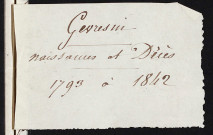 Gevresin
naissances et Décès
1793 à 1842